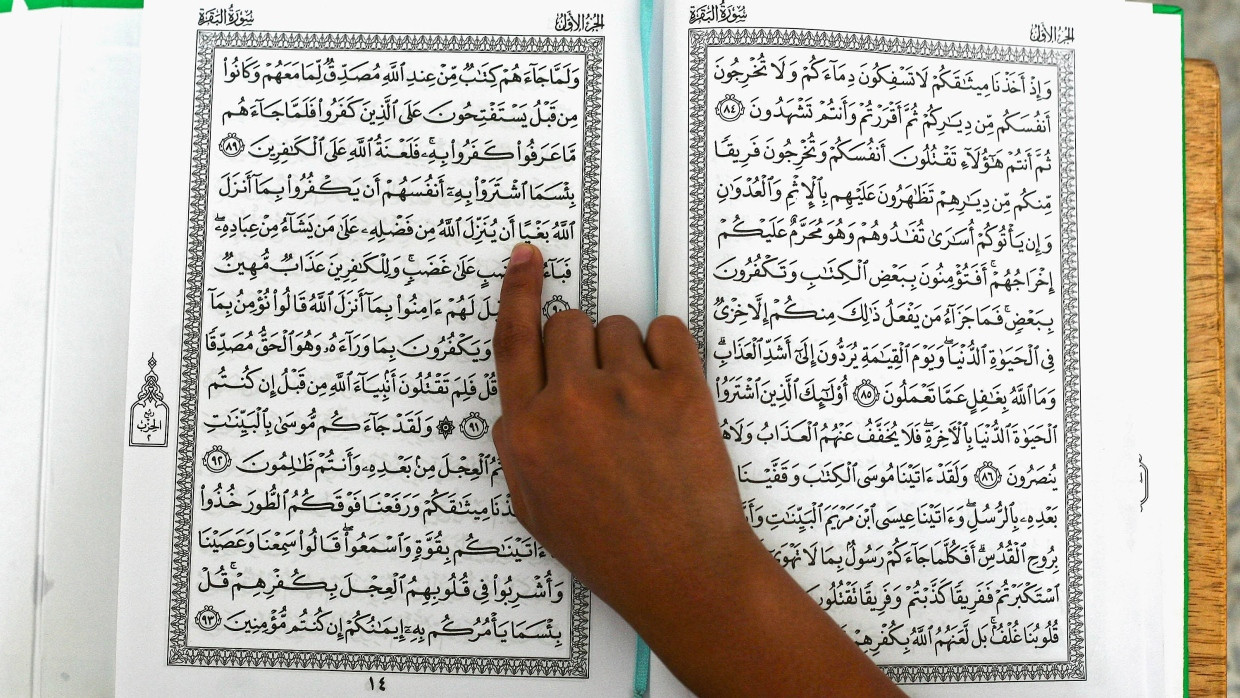 سُورَةُ البَقَرَةِ
الجُزْءُ الأَوَّلُ
وَإِذْ أَخَذْنَا مِيثَٰقَكُمْ لَا تَسْفِكُونَ دِمَآءَكُمْ وَلَا تُخْرِجُونَ
أَنفُسَكُم مِّن دِيَٰرِكُمْ ثُمَّ أَقْرَرْتُمْ وَأَنتُمْ تَشْهَدُونَ ٨٤
ثُمَّ أَنتُمْ هَٰٓؤُلَآءِ تَقْتُلُونَ أَنفُسَكُمْ وَتُخْرِجُونَ فَرِيقًا
مِّنكُم مِّن دِيَٰرِهِمْ تَظَٰهَرُونَ عَلَيْهِم بِٱلْإِثْمِ وَٱلْعُدْوَٰنِ
وَإِن يَأْتُوكُمْ أُسَٰرَىٰ تُفَٰدُوهُمْ وَهُوَ مُحَرَّمٌ عَلَيْكُمْ
إِخْرَاجُهُمْ ۚ أَفَتُؤْمِنُونَ بِبَعْضِ ٱلْكِتَٰبِ وَتَكْفُرُونَ
بِبَعْضٍ ۚ فَمَا جَزَآءُ مَن يَفْعَلُ ذَٰلِكَ مِنكُمْ إِلَّا خِزْىٌ
فِى ٱلْحَيَوٰةِ ٱلدُّنْيَا ۖ وَيَوْمَ ٱلْقِيَٰمَةِ يُرَدُّونَ إِلَىٰٓ أَشَدِّ ٱلْعَذَابِ ۗ
وَمَا ٱللَّهُ بِغَٰفِلٍ عَمَّا تَعْمَلُونَ ٨٥ أُو۟لَٰٓئِكَ ٱلَّذِينَ ٱشْتَرَوُا۟
ٱلْحَيَوٰةَ ٱلدُّنْيَا بِٱلْءَاخِرَةِ ۖ فَلَا يُخَفَّفُ عَنْهُمُ ٱلْعَذَابُ وَلَا هُ
يُنصَرُونَ ٨٦ وَلَقَدْ ءَاتَيْنَا مُوسَى ٱلْكِتَٰبَ وَقَفَّيْنَا
بَعْدِهِۦ بِٱلرُّسُلِ ۖ وَءَاتَيْنَا عِيسَى ٱبْنَ مَرْيَمَ ٱلْبَيِّنَٰتِ
بِرُوحِ ٱلْقُدُسِ ۗ أَفَكُلَّمَا جَآءَكُمْ رَسُولٌۢ بِمَا لَا تَهْوَىٰٓ
ٱسْتَكْبَرْتُمْ فَفَرِيقًا كَذَّبْتُمْ وَفَرِيقًا تَقْتُلُونَ
قُلُوبُنَا غُلْفٌۢ ۚ بَل لَّعَنَهُمُ ٱللَّهُ بِكُفْرِهِمْ
سُورَةُ البَقَرَةِ
الجُزْءُ الأَوَّلُ
وَلَمَّا جَآءَهُمْ كِتَٰبٌ مِّنْ عِندِ ٱللَّهِ مُصَدِّقٌ لِّمَا مَعَهُمْ وَكَانُوا۟
مِن قَبْلُ يَسْتَفْتِحُونَ عَلَى ٱلَّذِينَ كَفَرُوا۟ فَلَمَّا جَآءَهُم
مَّا عَرَفُوا۟ كَفَرُوا۟ بِهِۦ ۚ فَلَعْنَةُ ٱللَّهِ عَلَى ٱلْكَٰفِرِينَ ٨٩
بِئْسَمَا ٱشْتَرَوْا۟ بِهِۦٓ أَنفُسَهُمْ أَن يَكْفُرُوا۟ بِمَآ أَنزَلَ
ٱللَّهُ بَغْيًا أَن يُنَزِّلَ ٱللَّهُ مِن فَضْلِهِۦ عَلَىٰ مَن يَشَآءُ مِنْ عِبَادِهِۦ ۖ
فَبَآءُ ضَبٍ عَلَىٰ غَضَبٍ ۚ وَلِلْكَٰفِرِينَ عَذَابٌ مُّهِينٌ
٩٠ يلَ لَهُمْ ءَامِنُوا۟ بِمَآ أَنزَلَ ٱللَّهُ قَالُوا۟ نُؤْمِنُ بِمَآ
وَيَكْفُرُونَ بِمَا وَرَآءَهُۥ وَهُوَ ٱلْحَقُّ مُصَدِّقًا
قُلْ فَلِمَ تَقْتُلُونَ أَنۢبِيَآءَ ٱللَّهِ مِن قَبْلُ إِن كُنتُم
٩١ ۞ وَلَقَدْ جَآءَكُم مُّوسَىٰ بِٱلْبَيِّنَٰتِ
تُمُ ٱلْعِجْلَ مِنۢ بَعْدِهِۦ وَأَنتُمْ ظَٰلِمُونَ ٩٢
ذْنَا مِيثَٰقَكُمْ وَرَفَعْنَا فَوْقَكُمُ ٱلطُّورَ خُذُوا۟
ءَاتَيْنَٰكُم بِقُوَّةٍ وَٱسْمَعُوا۟ ۖ قَالُوا۟ سَمِعْنَا وَعَصَيْنَا
وَأُشْرِبُوا۟ فِى قُلُوبِهِمُ ٱلْعِجْلَ بِكُفْرِهِمْ ۚ قُلْ
بِئْسَمَا يَأْمُرُكُم بِهِۦٓ إِيمَٰنُكُمْ إِن كُنتُم مُّؤْمِنِينَ ٩٣
ربع
الحزب
٢
١٤